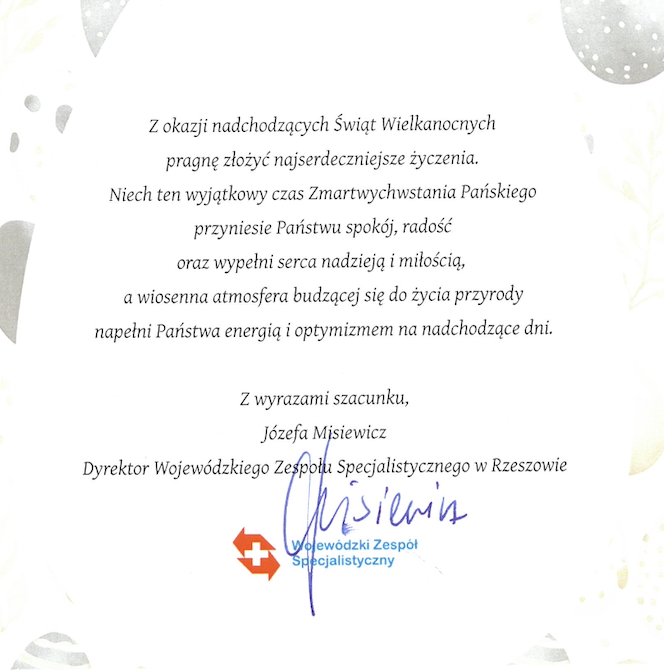 Z okazji nadchodzących Świąt Wielkanocnych
pragnę złożyć najserdeczniejsze życzenia.
Niech ten wyjątkowy czas Zmartwychwstania Pańskiego
przyniesie Państwu spokój, radość
oraz wypełni serca nadzieją i miłością,
a wiosenna atmosfera budzącej się do życia przyrody
napełni Państwa energią i optymizmem na nadchodzące dni.
Z wyrazami szacunku,
Józefa Misiewicz
Dyrektor Wojewódzkiego Zespołu Specjalistycznego w Rzeszowie
JMisiewicz
Wojewódzki Zespół
Specjalistyczny